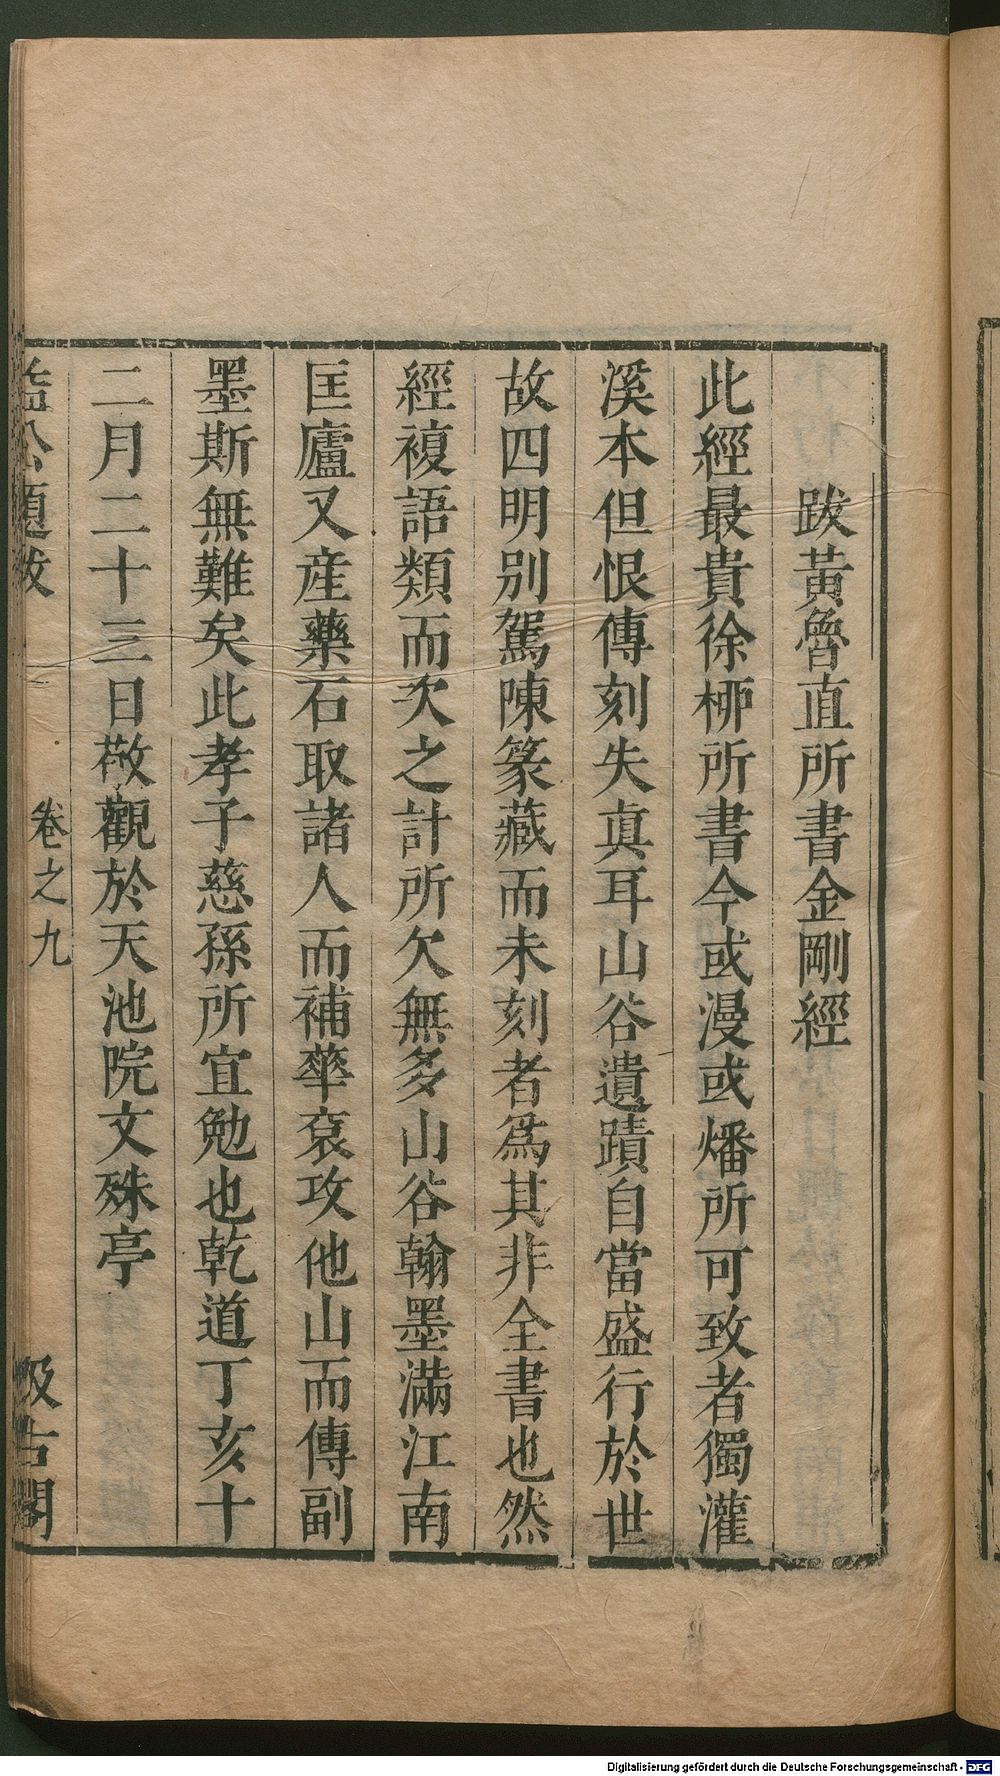 跋黃魯直所書金剛經
此經最貴徐栁所書今或漫或燔所可致者獨灌
溪本但恨傳刻失眞耳山谷遺蹟自當盛行於世
故四明別駕陳篆藏而未刻者爲其非全書也然
經複語類而次之計所欠無多山谷翰墨滿江南
匡廬又産藥石取諸人而補華衮攻他山而傳副
墨斯無難矣此孝子慈孫所宜勉也乾道丁亥十
二月二十三日敬觀於天池院文殊亭
益公題跋 卷之九 汲古閣
Digitalisierung gefördert durch die Deutsche Forschungsgemeinschaft - DFG